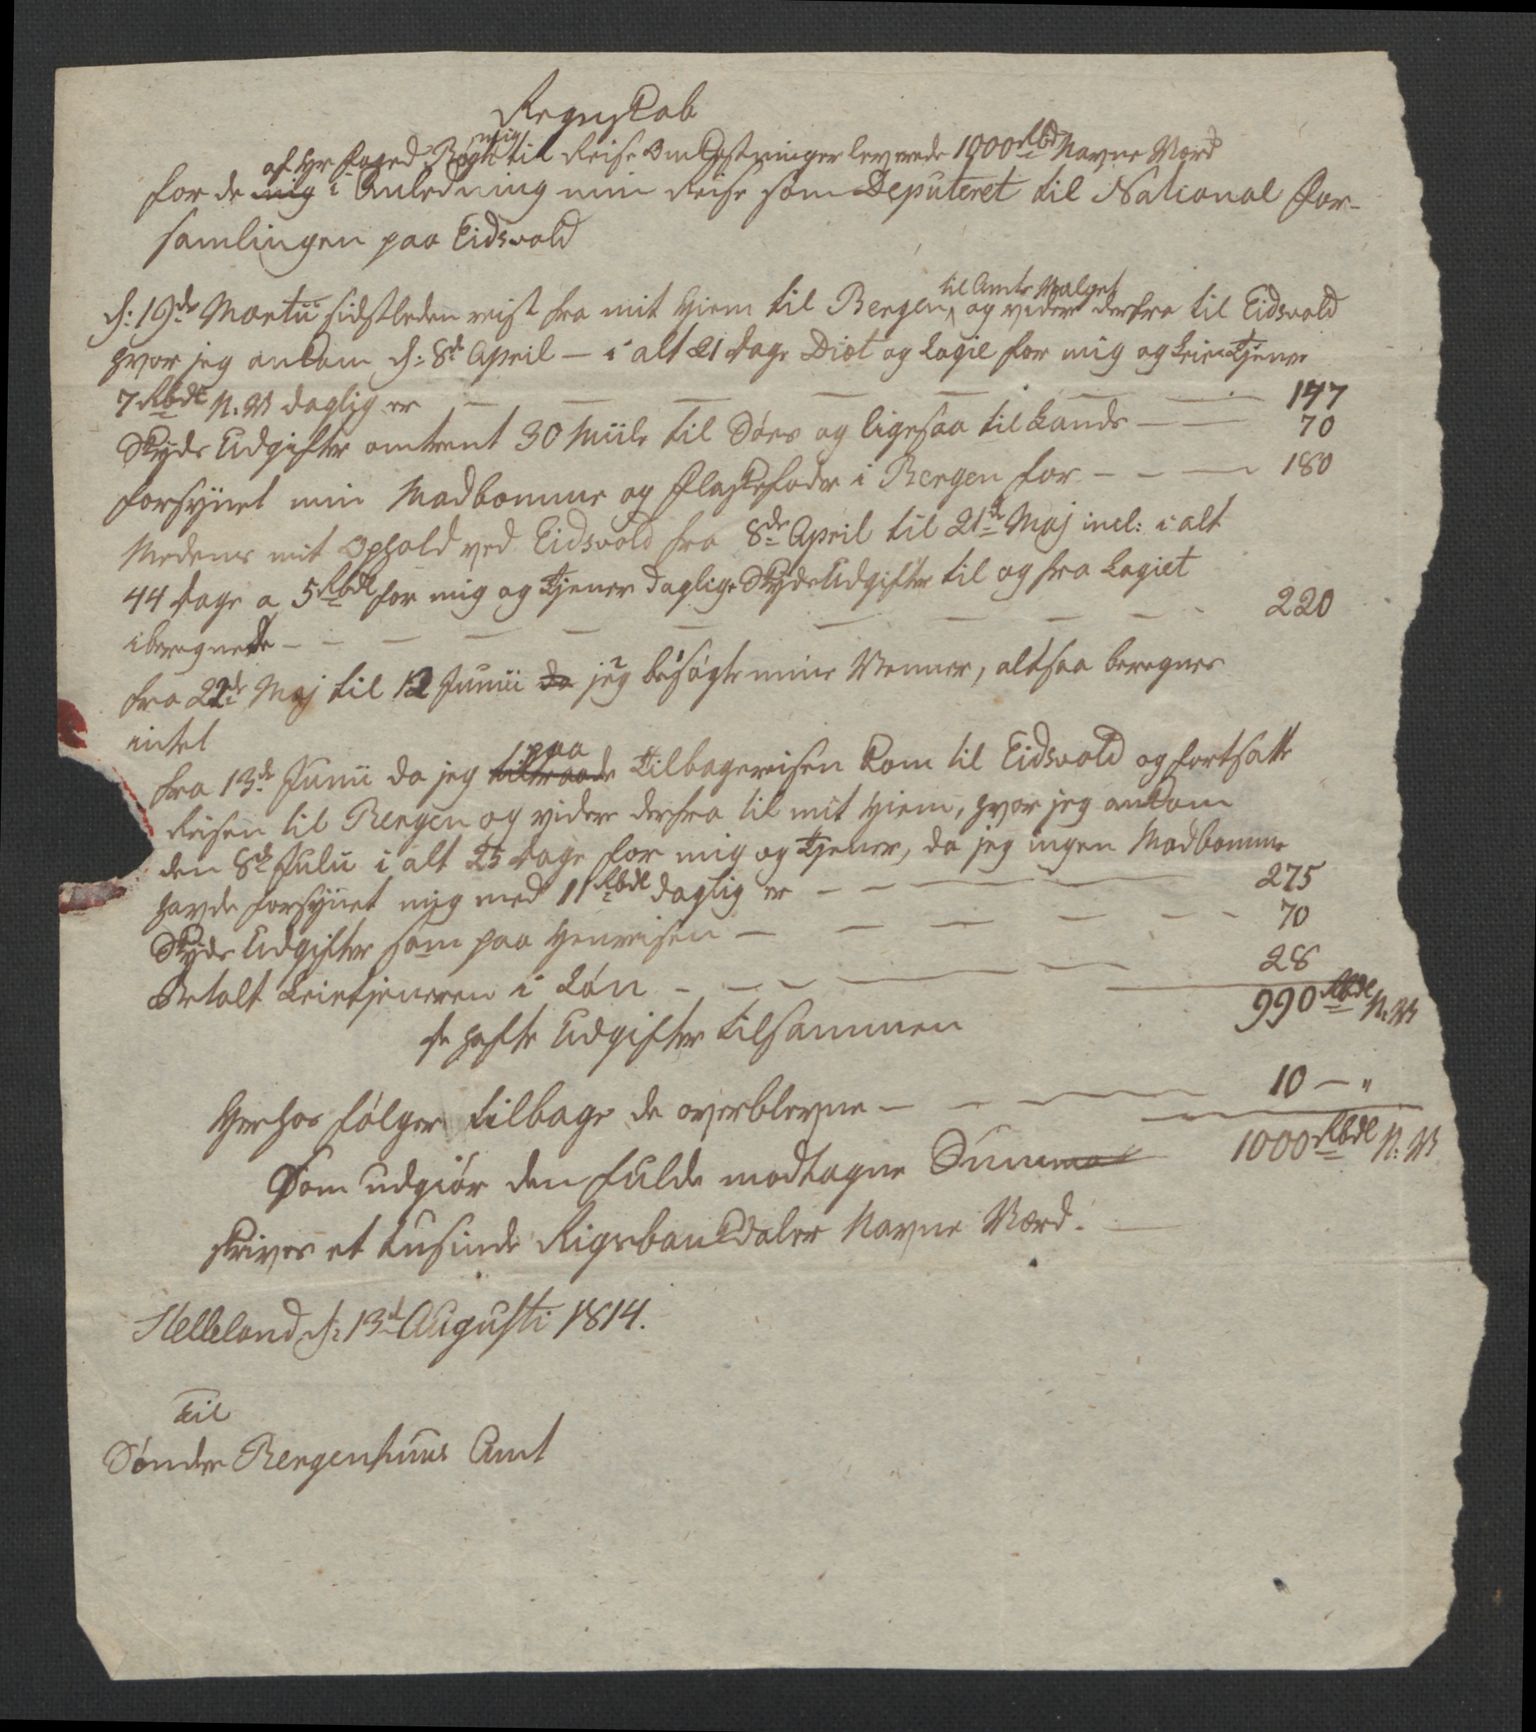 Regnskab
af Hr Foged Bøgh mig til Reise Omkostninger leverede 1000 Rbd Navne Værd
for de mig i Anledning min Reise som Deputeret til National For-
samlingen paa Eidsvold
d: 19de Martii sidstleden reist fra mit Hiem til Bergen til Amts Valget og videre derfra til Eidsvold
hvor jeg ankom d: 8de April – i alt 21 Dage Diæt og Logie for mig og Leie Tjener
7 Rbdl N. V daglig er — 147
Skyds Udgifter omtrent 30 Miile til Søes og ligesaa til Lands — 70
forsynet min Madbomme og Flaskefoder i Bergen for — 180
Medens mit Ophold ved Eidsvold fra 8de April til 21de Maj incl: i alt
44 Dage a 5 Rbdl for mig og Tjener daglige Skyds Udgifter til og fra Logiet
iberegnede — 220
fra 22de Maj til 12 Junii da jeg besøgte mine Venner, altsaa beregnes
intet
fra 13de Junii da jeg tiltraade paa Tilbagereisen kom til Eidsvold og fortsatte
Reisen til Bergen og videre derfra til mit Hiem, hvor jeg ankom
den 8de Julii i alt 25 Dage for mig og Tjener, da jeg ingen Madbomme
havde forsynet mig med 11 Rbdl daglig er — 275
Skyds Udgifter som paa Henreisen — 70
Betalt Leietjeneren i Løn — 28
de hafte Udgifter tilsammen 990 Rbdl N. V
Herhos følger tilbage de overblevne — 10 – "
Som udgiør den fulde modtagne Summa 1000 Rbdl N. V
skriver et tusinde Rigsbankdaler Navne Værd.
Helleland d: 13de Augusti 1814.
Til
Søndre Bergenhuus Amt